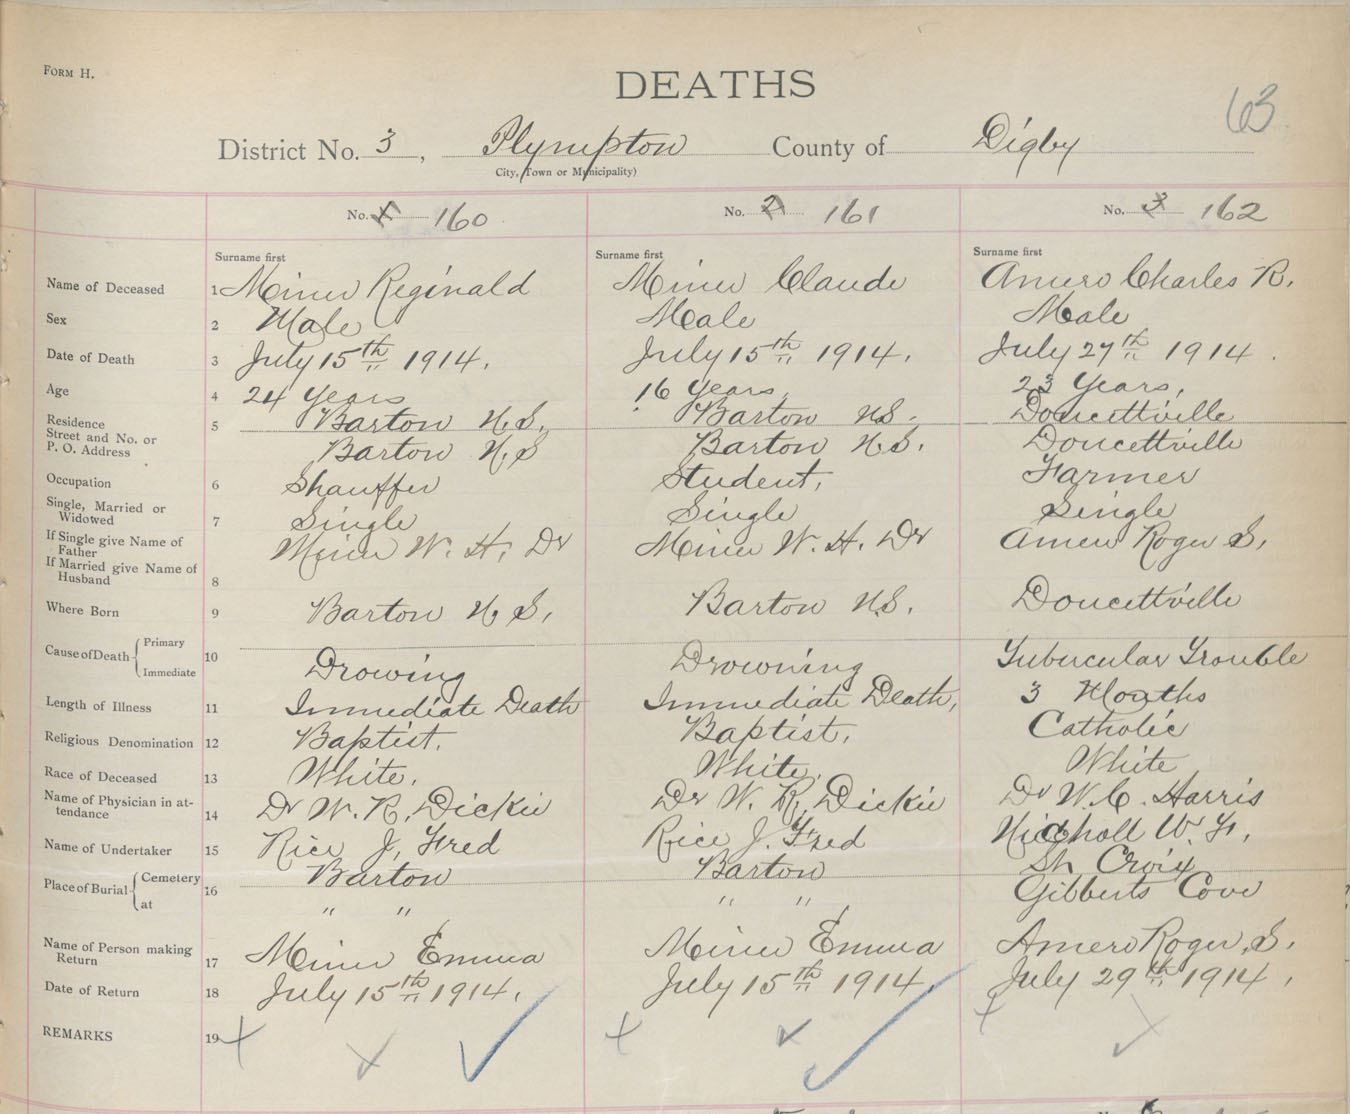 FORM H.
DEATHS
63
District No. 3, Plympton County of Digby
City, Town or Municipality)
No. 1 160 No. 2 161 No. 3 162
Surname first Surname first Surname first
Name of Deceased 1 Miner Reginald Miner Claude Amero Charles R.
Sex 2 Male Male Male
Date of Death 3 July 15th 1914. July 15th 1914. July 27th 1914.
Age 4 24 years 16 years 23 years,
Residence 5 Barton N.S. Barton N.S. Doucettville
Street and No. or
P. O. Address Barton N.S Barton N.S. Doucettville
Occupation 6 Shauffer Student, Farmer
Single, Married or
Widowed 7 Single Single Single
If Single give Name of
Father Miner W. H. Dr Miner W. H. Dr Amero Roger S.
If Married give Name of
Husband 8
Where Born 9 Barton N.S. Barton N.S. Doucettville
Cause of Death Primary Tubercular Trouble
Immediate 10 Drowing Drowning
Length of Illness 11 Immediate Death Immediate Death, 3 Months
Religious Denomination 12 Baptist. Baptist, Catholic
Race of Deceased 13 White. White. White
Name of Physician in at-
tendance 14 Dr W. R. Dickie Dr W. R. Dickie Dr W. C. Harris
Name of Undertaker 15 Rice J. Fred Rice J. Fred Nicholl W. F.
Place of Burial Cemetery 16 Barton Barton St Croix
at " " " " Gibberts Cove
Name of Person making
Return 17 Miner Emma Miner Emma Amero Roger S.
Date of Return 18 July 15th 1914. July 15th 1914. July 29th 1914.
REMARKS 19